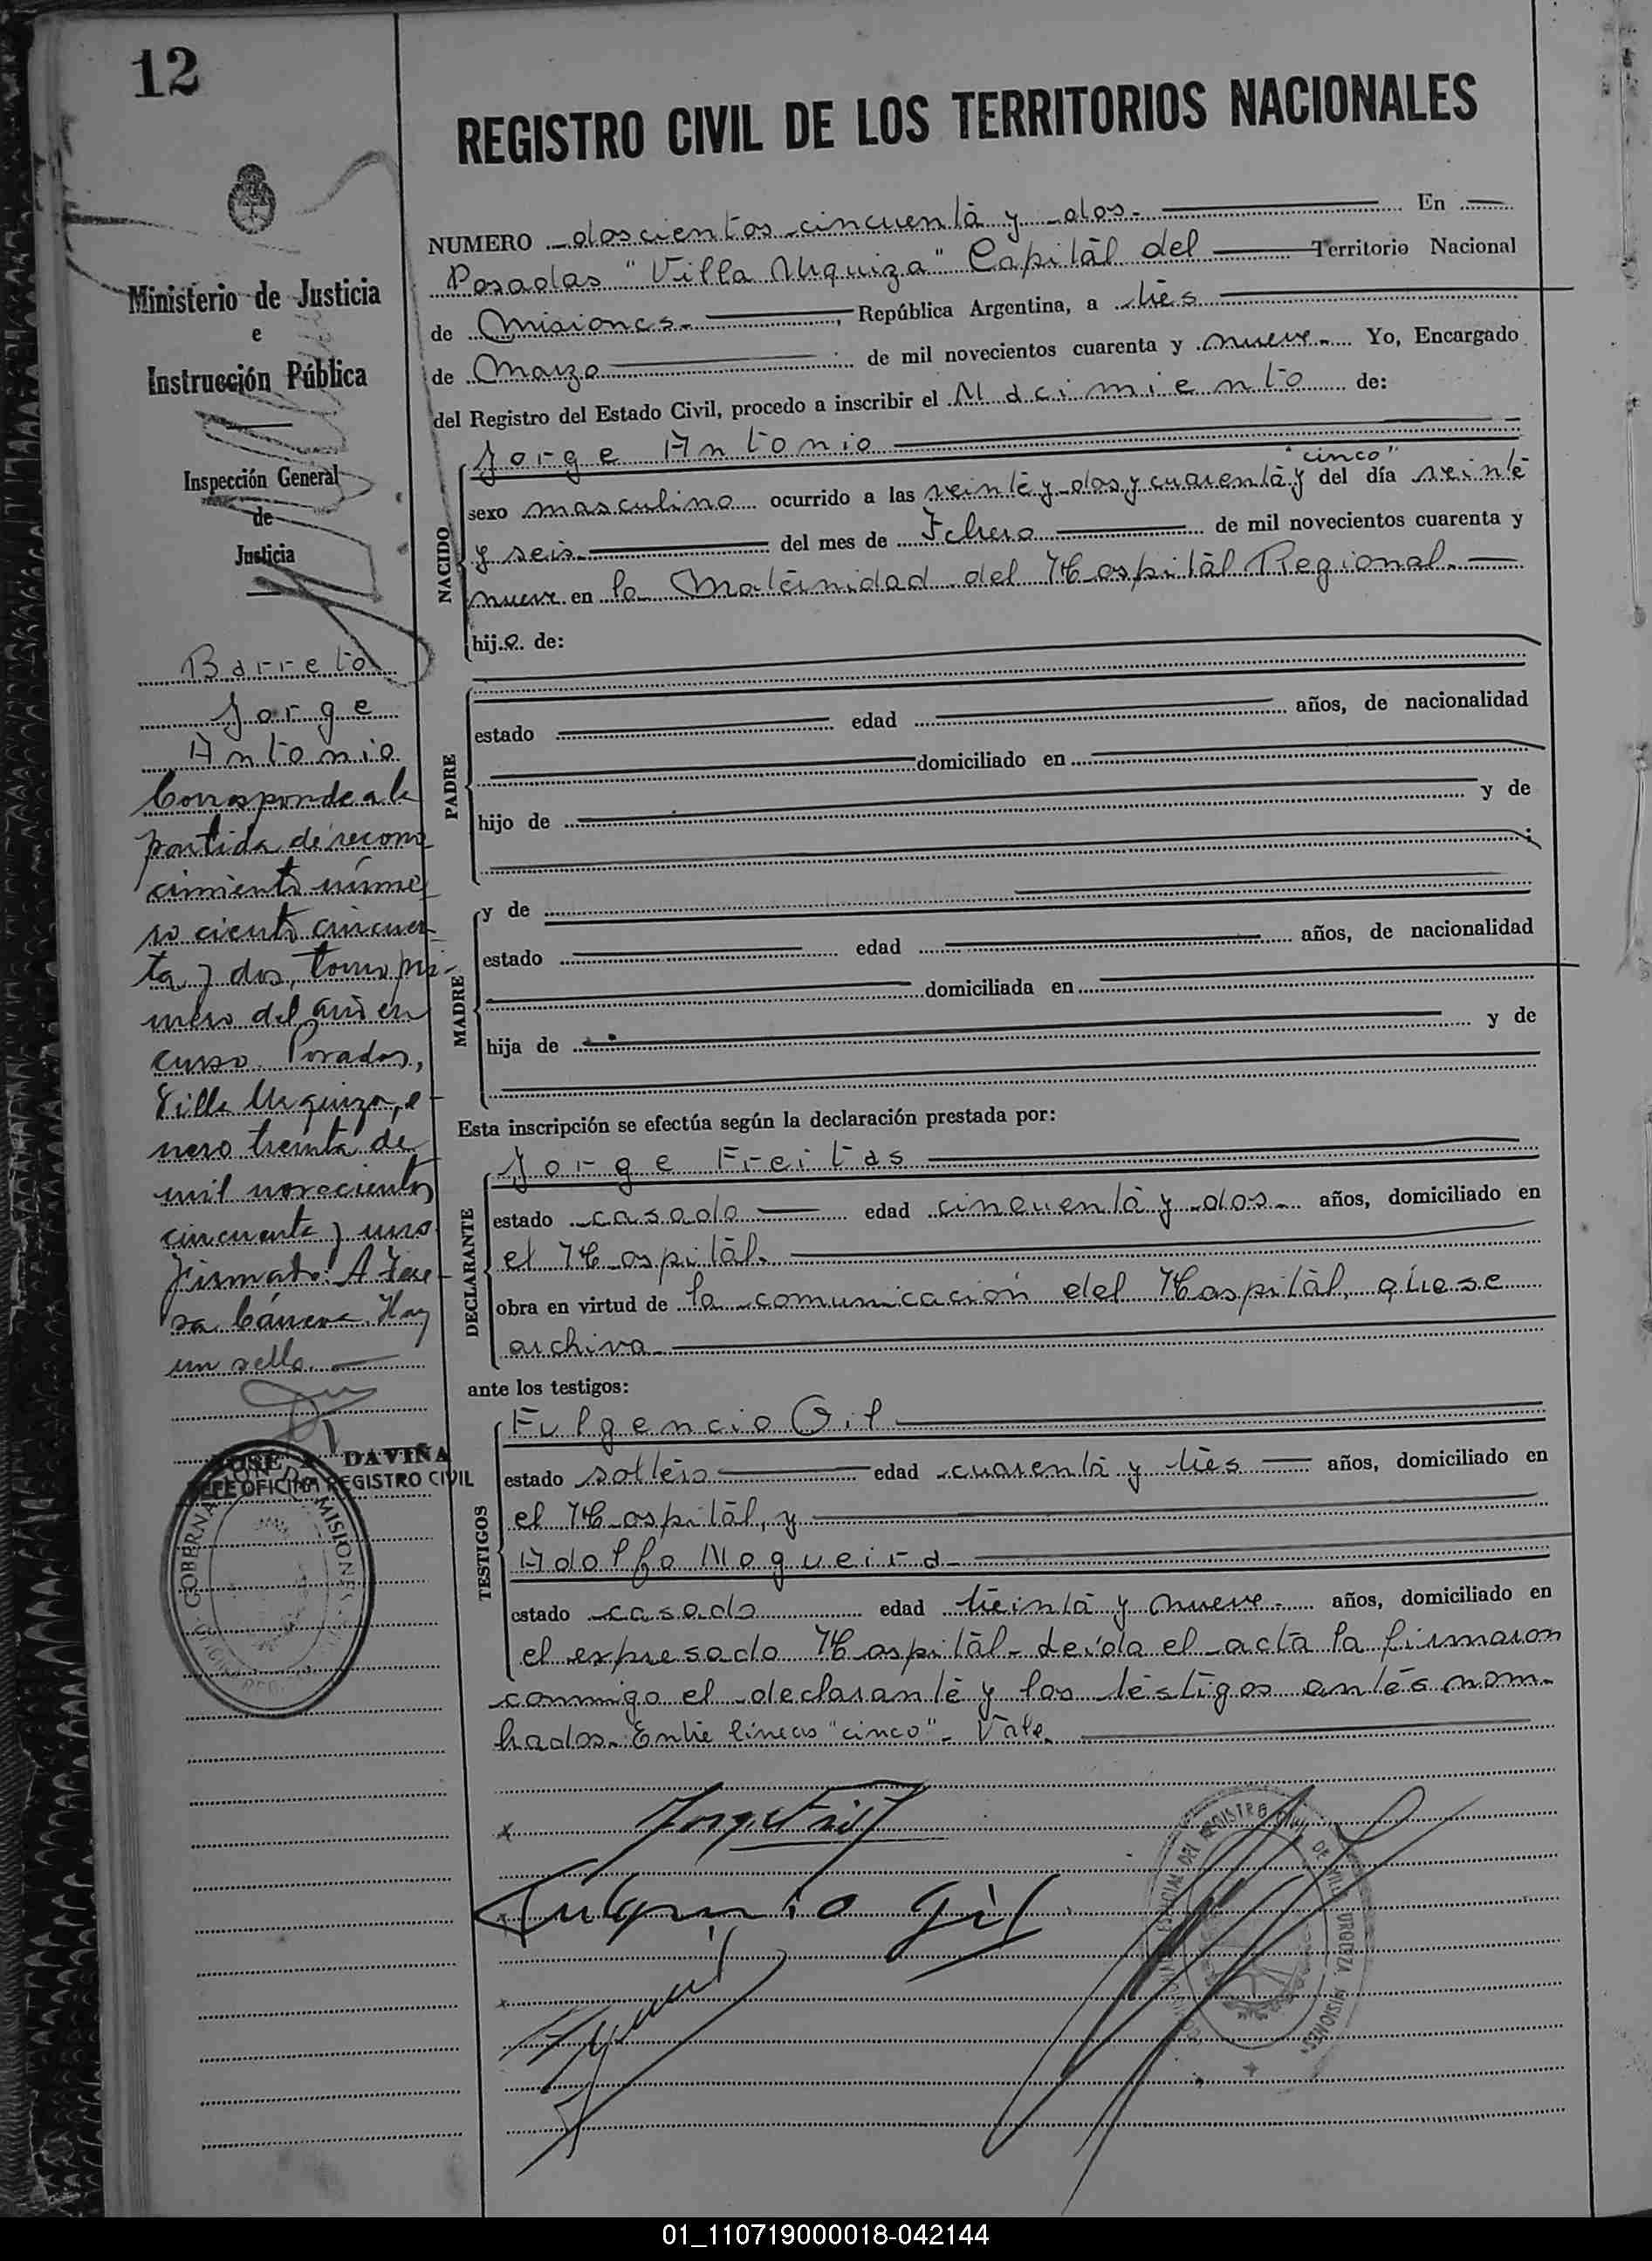 12
REGISTRO CIVIL DE LOS TERRITORIOS NACIONALES
Ministerio de Justicia
e
Instrucción Pública
Inspección General
de
Justicia
Barreto
Jorge
Antonio
Corresponde a la
partida de recono
cimiento núme
ro ciento cincuen
ta y dos, tomo pri-
mero del año en
curso. Posadas,
Villa Urquiza, e-
nero treinta de
mil novecientos
cincuenta y uno.
Firmado: A Tere-
sa Cánova. Hay
un sello.
JOSE A. DAVIÑA
JEFE OFICINA REGISTRO CIVIL
GOBERNACION DE MISIONES
NUMERO doscientos cincuenta y dos. En
Posadas "Villa Urquiza" Capital del Territorio Nacional
de Misiones. , República Argentina, a tres
de Marzo de mil novecientos cuarenta y nueve. Yo, Encargado
del Registro del Estado Civil, procedo a inscribir el Nacimiento de:
NACIDO
Jorge Antonio
"cinco"
sexo masculino ocurrido a las veinte y dos y cuarenta y del día veinte
y seis. del mes de Febrero de mil novecientos cuarenta y
nueve en la Maternidad del Hospital Regional.
hijo de:
PADRE
estado edad años, de nacionalidad
domiciliado en
hijo de y de
;
MADRE
y de
estado edad años, de nacionalidad
domiciliada en
hija de y de
Esta inscripción se efectúa según la declaración prestada por:
DECLARANTE
Jorge Freitas
estado casado edad cincuenta y dos. años, domiciliado en
el Hospital.
obra en virtud de la comunicación del Hospital, que se
archiva.
ante los testigos:
TESTIGOS
Fulgencio Gil
estado soltero edad cuarenta y tres años, domiciliado en
el Hospital, y
Adolfo Nogueira.
estado casado edad treinta y nueve. años, domiciliado en
el expresado Hospital. Leída el acta la firmaron
conmigo el declarante y los testigos antes nom-
brados. Entre líneas "cinco". Vale.
Jorge Freitas
Fulgencio Gil
DEL REGISTRO CIVIL DE VILLA URQUIZA MISIONES
01_110719000018-042144